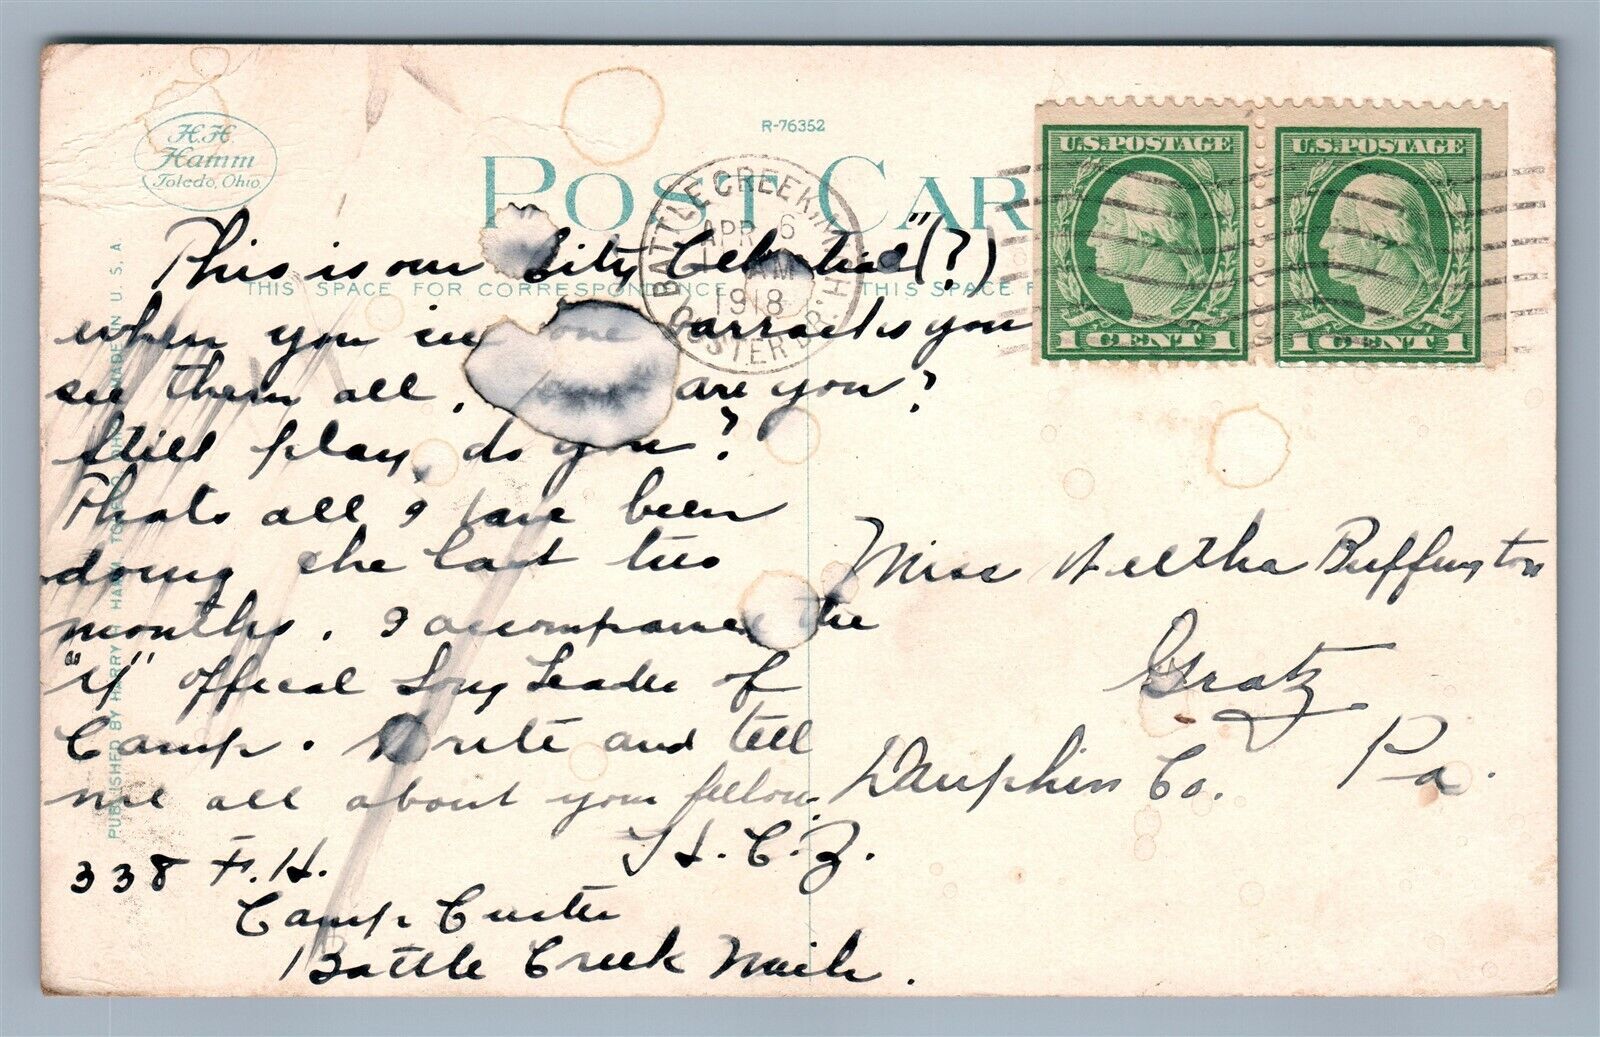 H.H.
Hamm
Toledo, Ohio.
R-76352
POST CAR
BATTLE CREEK, MICH.
APR 6
AM
1918
CUSTER BR.
U.S. POSTAGE
1 CENT 1
U.S. POSTAGE
1 CENT 1
THIS SPACE FOR CORRESPONDENCE
THIS SPACE F
PUBLISHED BY HARRY H. HAMM, TOLEDO, OHIO. MADE IN U. S. A.
This is our "City Celestial" (?)
when you see one barracks you
see them all. are you?
Still play, do you?
Thats all I have been
doing the last two
months. I accompanied the
"Y" offical Song Leader of
Camp. Write and tell
me all about your fellow.
H. C. Z.
338 F. H.
Camp Custer
Battle Creek Mich.
Miss Buffington
Gratz
Dauphin Co. Pa.